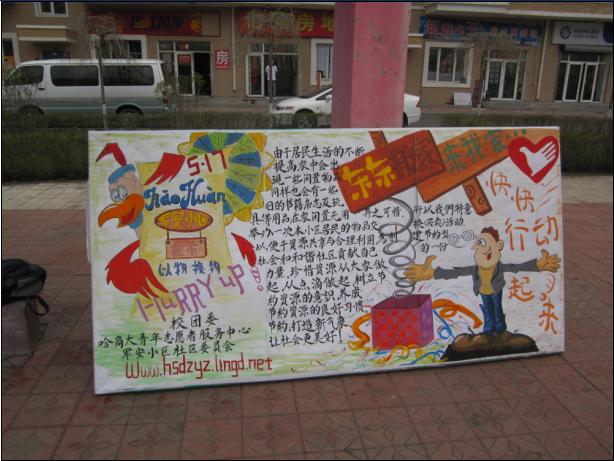 5·17
Hǎo Huàn
以物换物
HuRRY up!
校团委
哈商大青年志愿者服务中心
军安小区社区委员会
www.hsdzyz.lingd.net
由于居民生活的不断
提高家中会出
现一些闲置物品
同样也会有一些
旧的书籍杂志及玩
具等用品在家闲置无用
弃之可惜,
所以我们特意
举办一次本小区居民的物品交
换(买卖)活动
以便于资源共享与合理利用,为
社会和和谐社区贡献自己
的一份
力量,珍惜资源从大家做
起,从点滴做起,树立节
约资源的意识,养成
节约资源的良好习惯。
节约,打造新气象
让社会更美好!
搬家
来找家...
快快
行动
起来
房